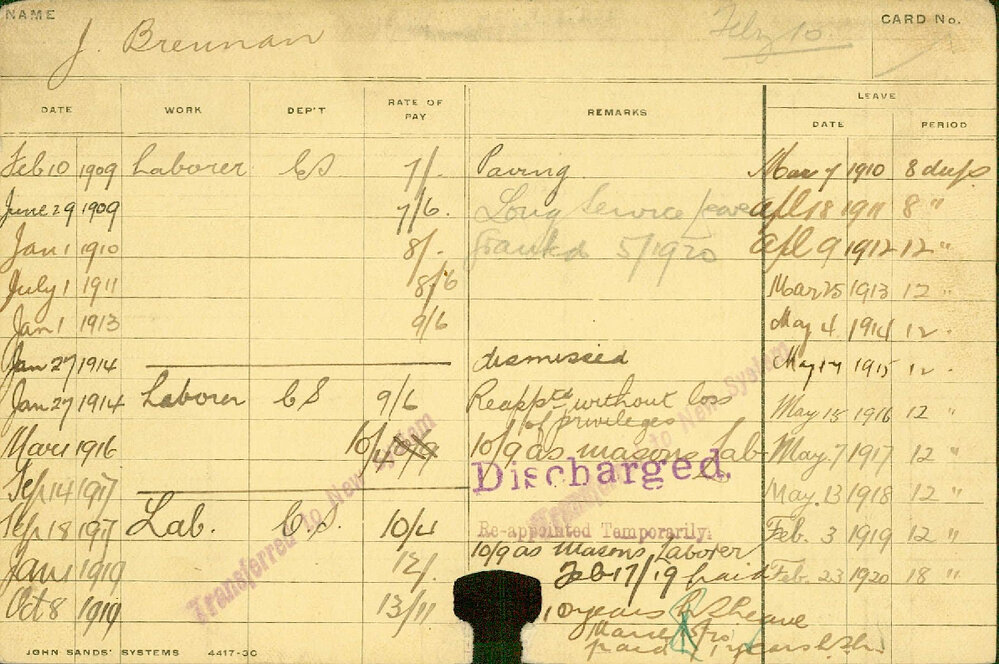 NAME
J. Brennan
Feby 10
CARD No.
DATE WORK DEP'T RATE OF PAY REMARKS LEAVE
DATE PERIOD
Feb 10 1909 Laborer CS 7/- Paving Mar 7 1910 8 days
June 29 1909 7/6. Long Service Leave Apl 18 1911 8 "
Jan 1 1910 8/- Granted 5/1920 Apl 9 1912 12 "
July 1 1911 8/6 Mar 25 1913 12 "
Jan 1 1913 9/6 May 4 1914 12 "
Jan 27 1914 dismissed May 17 1915 12 "
Jan 27 1914 Laborer CS 9/6 Reapptd without loss May 15 1916 12 "
of privileges
Mar 1 1916 10/4 10/9 as masons Lab May 7 1917 12 "
Discharged.
Sep 14 1917 May 13 1918 12 "
Sep 18 1917 Lab. C.S. 10/4 Re-appointed Temporarily. Feb. 3 1919 12 "
10/9 as Masons Laborer
Jan 1 1919 12/- Feb 17/19 paid Feb. 23 1920 18 "
Oct 8 1919 13/11 10 years
paid
Transferred to New System
Transferred to New System
JOHN SANDS' SYSTEMS 4417-3C